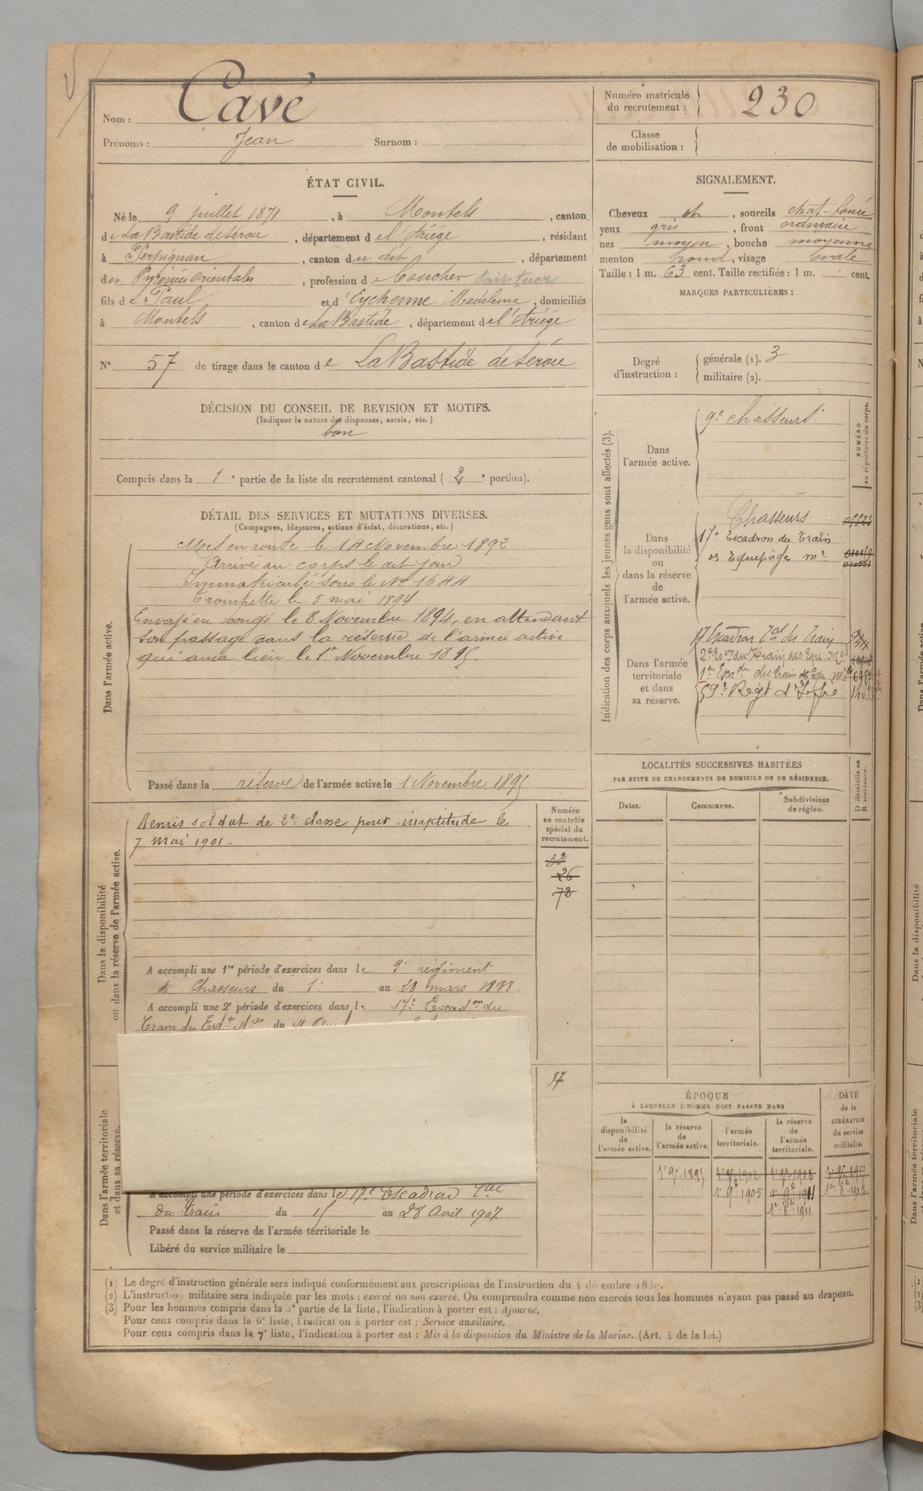 Nom : Cavé
Prénoms : Jean Surnom :
Numéro matricule du recrutement : 230
Classe de mobilisation :
ÉTAT CIVIL.
Né le 9 juillet 1871, à Montels, canton
de La Bastide de Sérou, département de l'Ariége, résidant
à Perpignan, canton du dit, département
des Pyrénées Orientales, profession de Boucher
fils de Paul et d'Eychenne Madeleine, domiciliés
à Montels, canton de La Bastide, département de l'Ariége
N° 57 de tirage dans le canton de La Bastide de Sérou
DÉCISION DU CONSEIL DE REVISION ET MOTIFS.
(Indiquer la nature des dispenses, sursis, etc.)
bon
Compris dans la 1e partie de la liste du recrutement cantonal (2e portion).
DÉTAIL DES SERVICES ET MUTATIONS DIVERSES.
(Campagnes, blessures, actions d'éclat, décorations, etc.)
Dans l'armée active.
Mis en route le 14 Novembre 1892
Arrivé au corps le dit jour
Immatriculé sous le No 1644
Trompette le 5 mai 1894
Envoyé en congé le 8 Novembre 1894, en attendant
son passage dans la réserve de l'armée active
qui aura lieu le 1er Novembre 1895.
Passé dans la réserve de l'armée active le 1 Novembre 1895
Dans la disponibilité ou dans la réserve de l'armée active.
Remis soldat de 2e classe pour inaptitude le
7 mai 1901 -
Numéro au contrôle spécial du recrutement.
32
26
72
A accompli une 1re période d'exercices dans le 9e régiment
de Chasseurs du 1er au 28 mars 1898.
A accompli une 2e période d'exercices dans le 17e Escadon du
Train des
Dans l'armée territoriale et dans sa réserve.
57
A accompli une période d'exercices dans le 17e Escadron Tal
du Train du 15 au 28 Avril 1907
Passé dans la réserve de l'armée territoriale le
Libéré du service militaire le
SIGNALEMENT.
Cheveux ch, sourcils chat. foncé
yeux gris, front ordinaire
nez moyen, bouche moyenne
menton rond, visage ovale
Taille : 1 m. 63 cent. Taille rectifiée : 1 m. cent.
MARQUES PARTICULIÈRES :
Degré d'instruction : générale (1). 3
militaire (2).
Indication des corps auxquels les jeunes gens sont affectés (3).
NUMÉRO au répertoire du corps.
Dans l'armée active.
9e chasseurs
Dans la disponibilité ou dans la réserve de l'armée active.
Chasseurs
17e Escadron du Train
des Equipages mres
Dans l'armée territoriale et dans sa réserve.
17 Escadron Tal du Train
59e Régt d'Infrie
LOCALITÉS SUCCESSIVES HABITÉES
PAR SUITE DE CHANGEMENTS DE DOMICILE OU DE RÉSIDENCE.
Dates. Communes. Subdivisions de région. D. domicile ou R. résidence.
ÉPOQUE
À LAQUELLE L'HOMME DOIT PASSER DANS
la disponibilité de l'armée active.
la réserve de l'armée active.
l'armée territoriale.
la réserve de l'armée territoriale.
DATE de la LIBÉRATION du service militaire.
1er 9bre 1895
1er 9bre 1905
(1) Le degré d'instruction générale sera indiqué conformément aux prescriptions de l'instruction du 4 décembre
(2) L'instruction militaire sera indiquée par les mots : exercé ou non exercé. On comprendra comme non exercés tous les hommes n'ayant pas passé au drapeau.
(3) Pour les hommes compris dans la 5e partie de la liste, l'indication à porter est : Ajourné.
Pour ceux compris dans la 6e liste, l'indication à porter est : Service auxiliaire.
Pour ceux compris dans la 7e liste, l'indication à porter est : Mis à la disposition du Ministre de la Marine. (Art. 4 de la loi.)